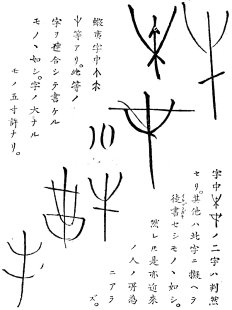 字中ノ二字ハ判然
セリ。其他ハ此字ニ擬ヘテ
徒書セシモノヽ如シ。
然レ𪜈是亦近來
ノ人ノ所為
ニアラ
ズ。
蝦夷字中
等アリ。此等ノ
字ヲ連合シテ書ケル
モノヽ如シ。字ノ大ナル
モノ五寸許ナリ。